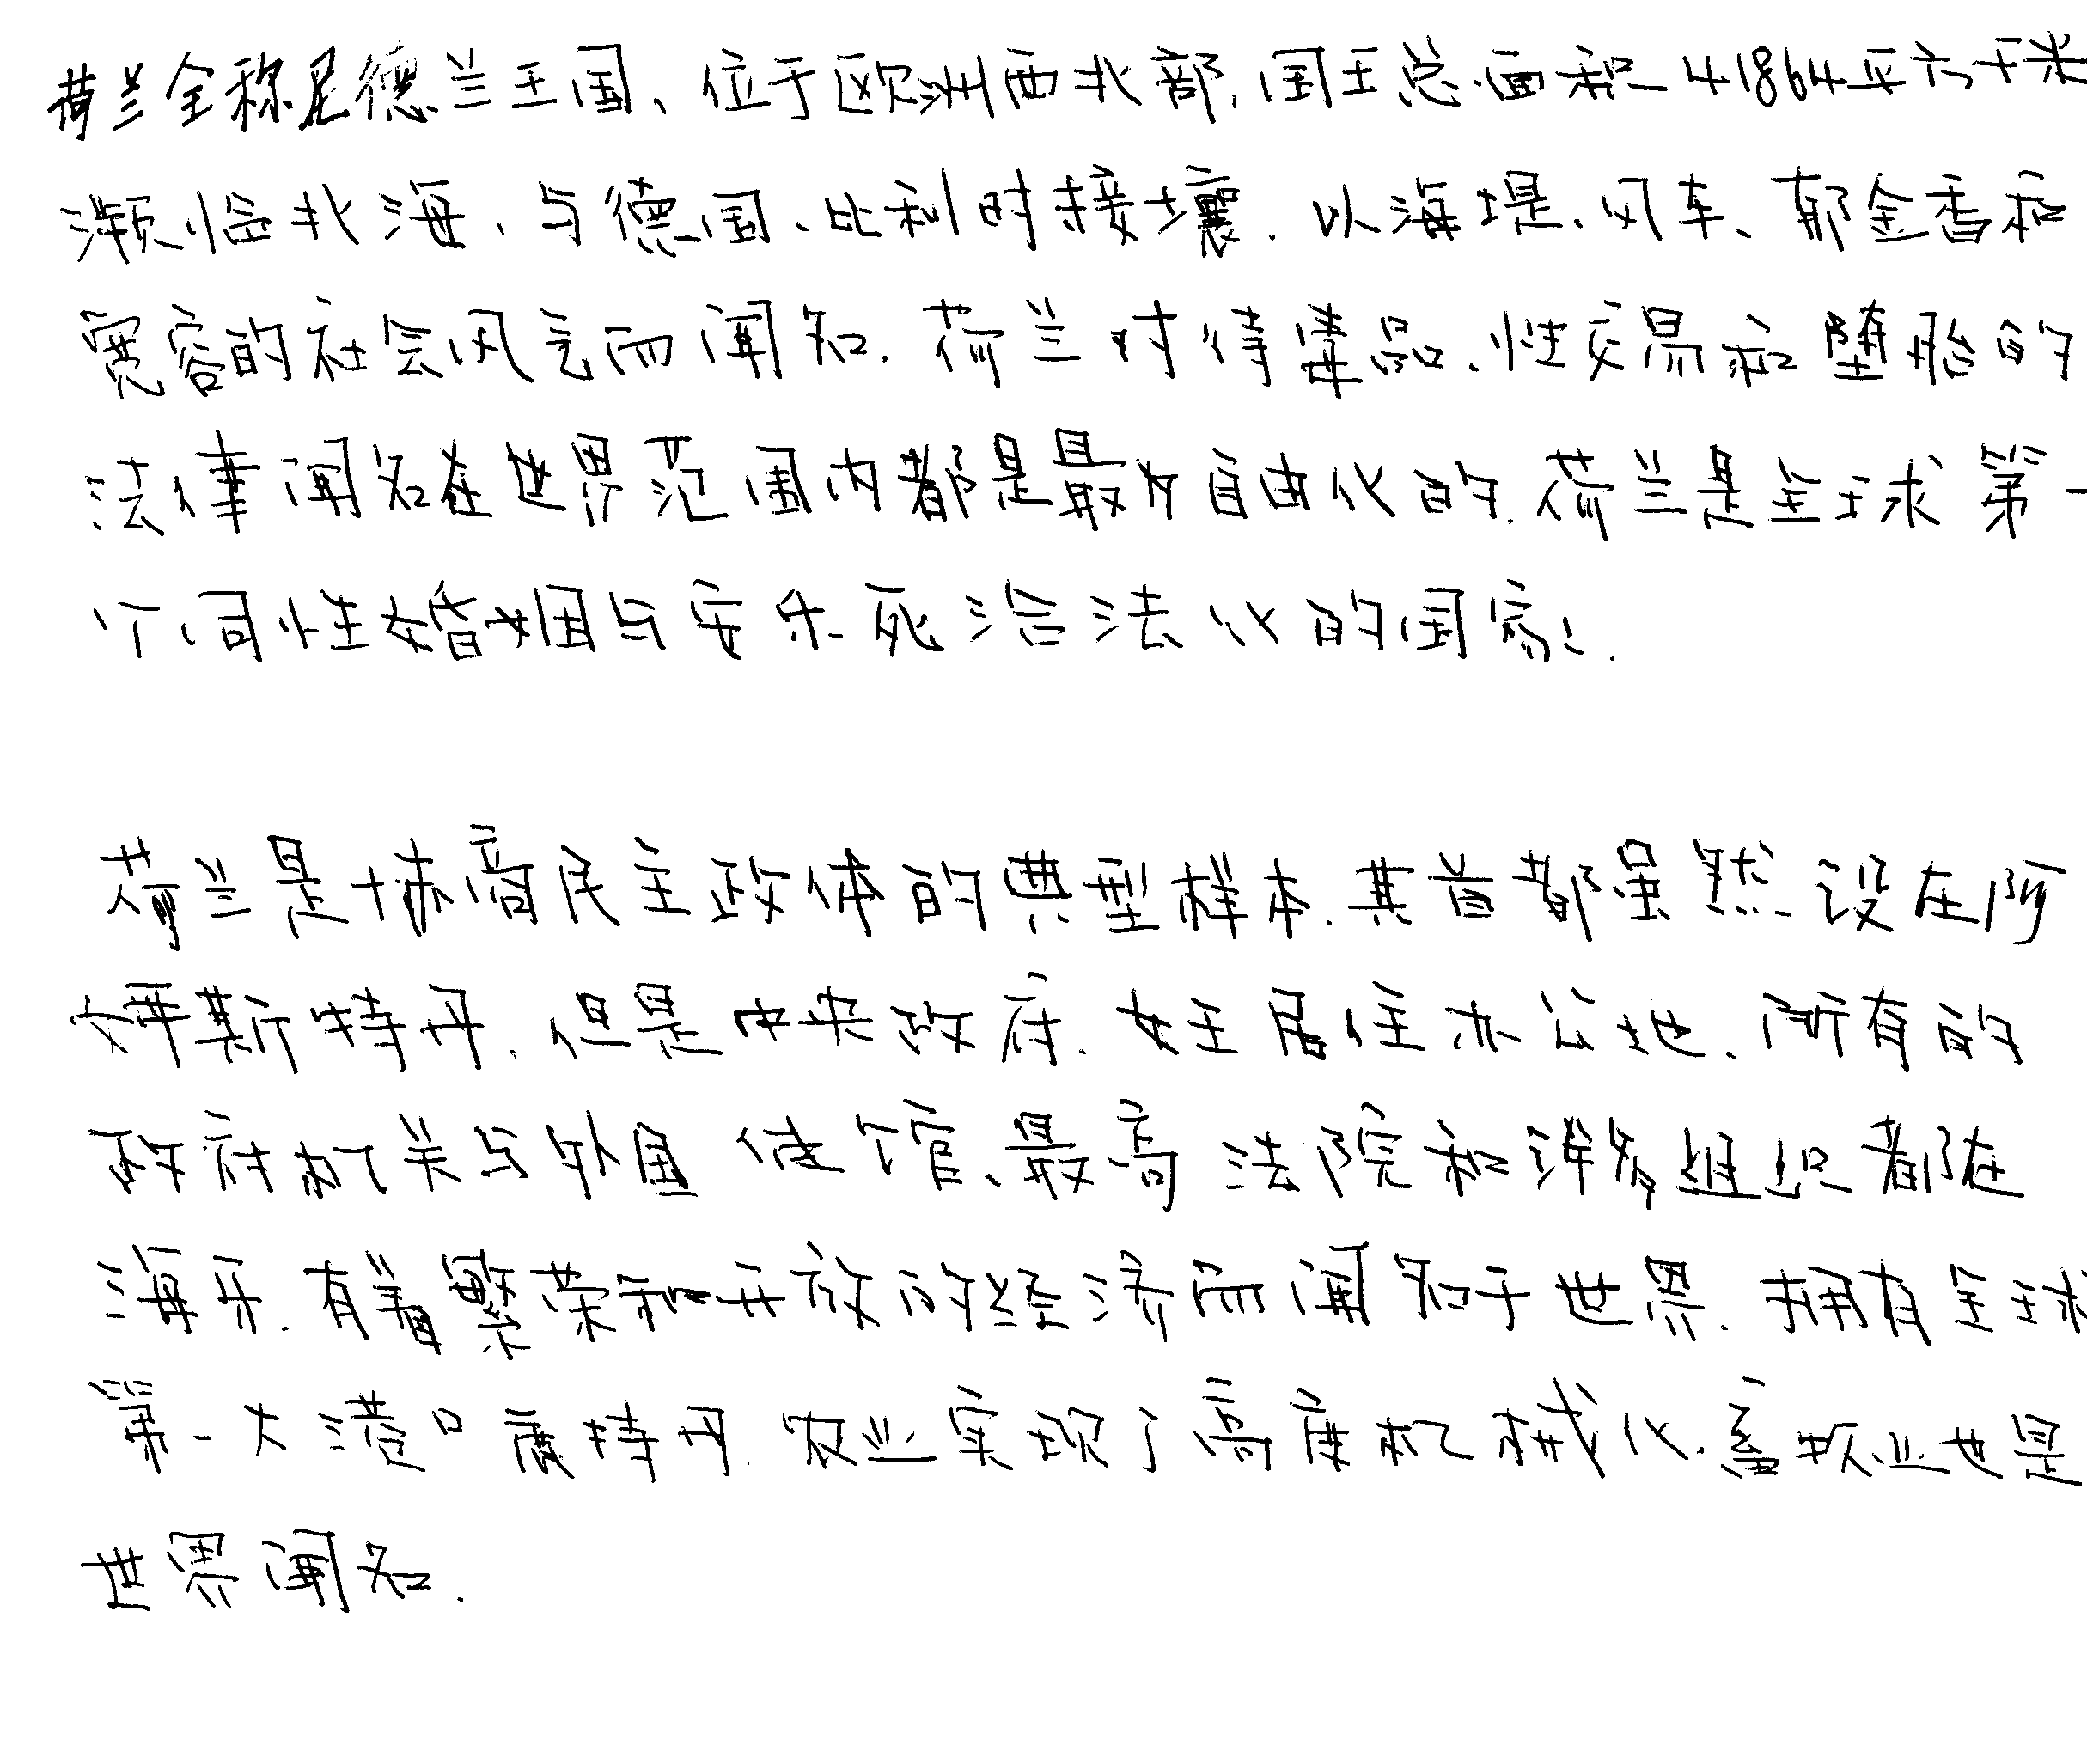 荷兰全称尼德兰王国、位于欧洲西北部,国土总面积41864平方千米
濒临北海、与德国、比利时接壤.以海堤、风车、郁金香和
宽容的社会风气而闻知.荷兰对待毒品、性交易和堕胎的
法律闻名在世界范围内都是最为自由化的.荷兰是全球第一
个同性婚姻与安乐死治法化的国家.

荷兰是协商民主政体的典型样本.其首都虽然设在阿
姆斯特丹.但是中央政府.女王居住办公地、所有的
政府机关与外国使馆、最高法院和许多组织都在
海牙.有着繁荣和开放的经济而闻名于世界.拥有全球
第一大港口鹿特丹.农业实现了高度机械化.畜牧业也是
世界闻名.